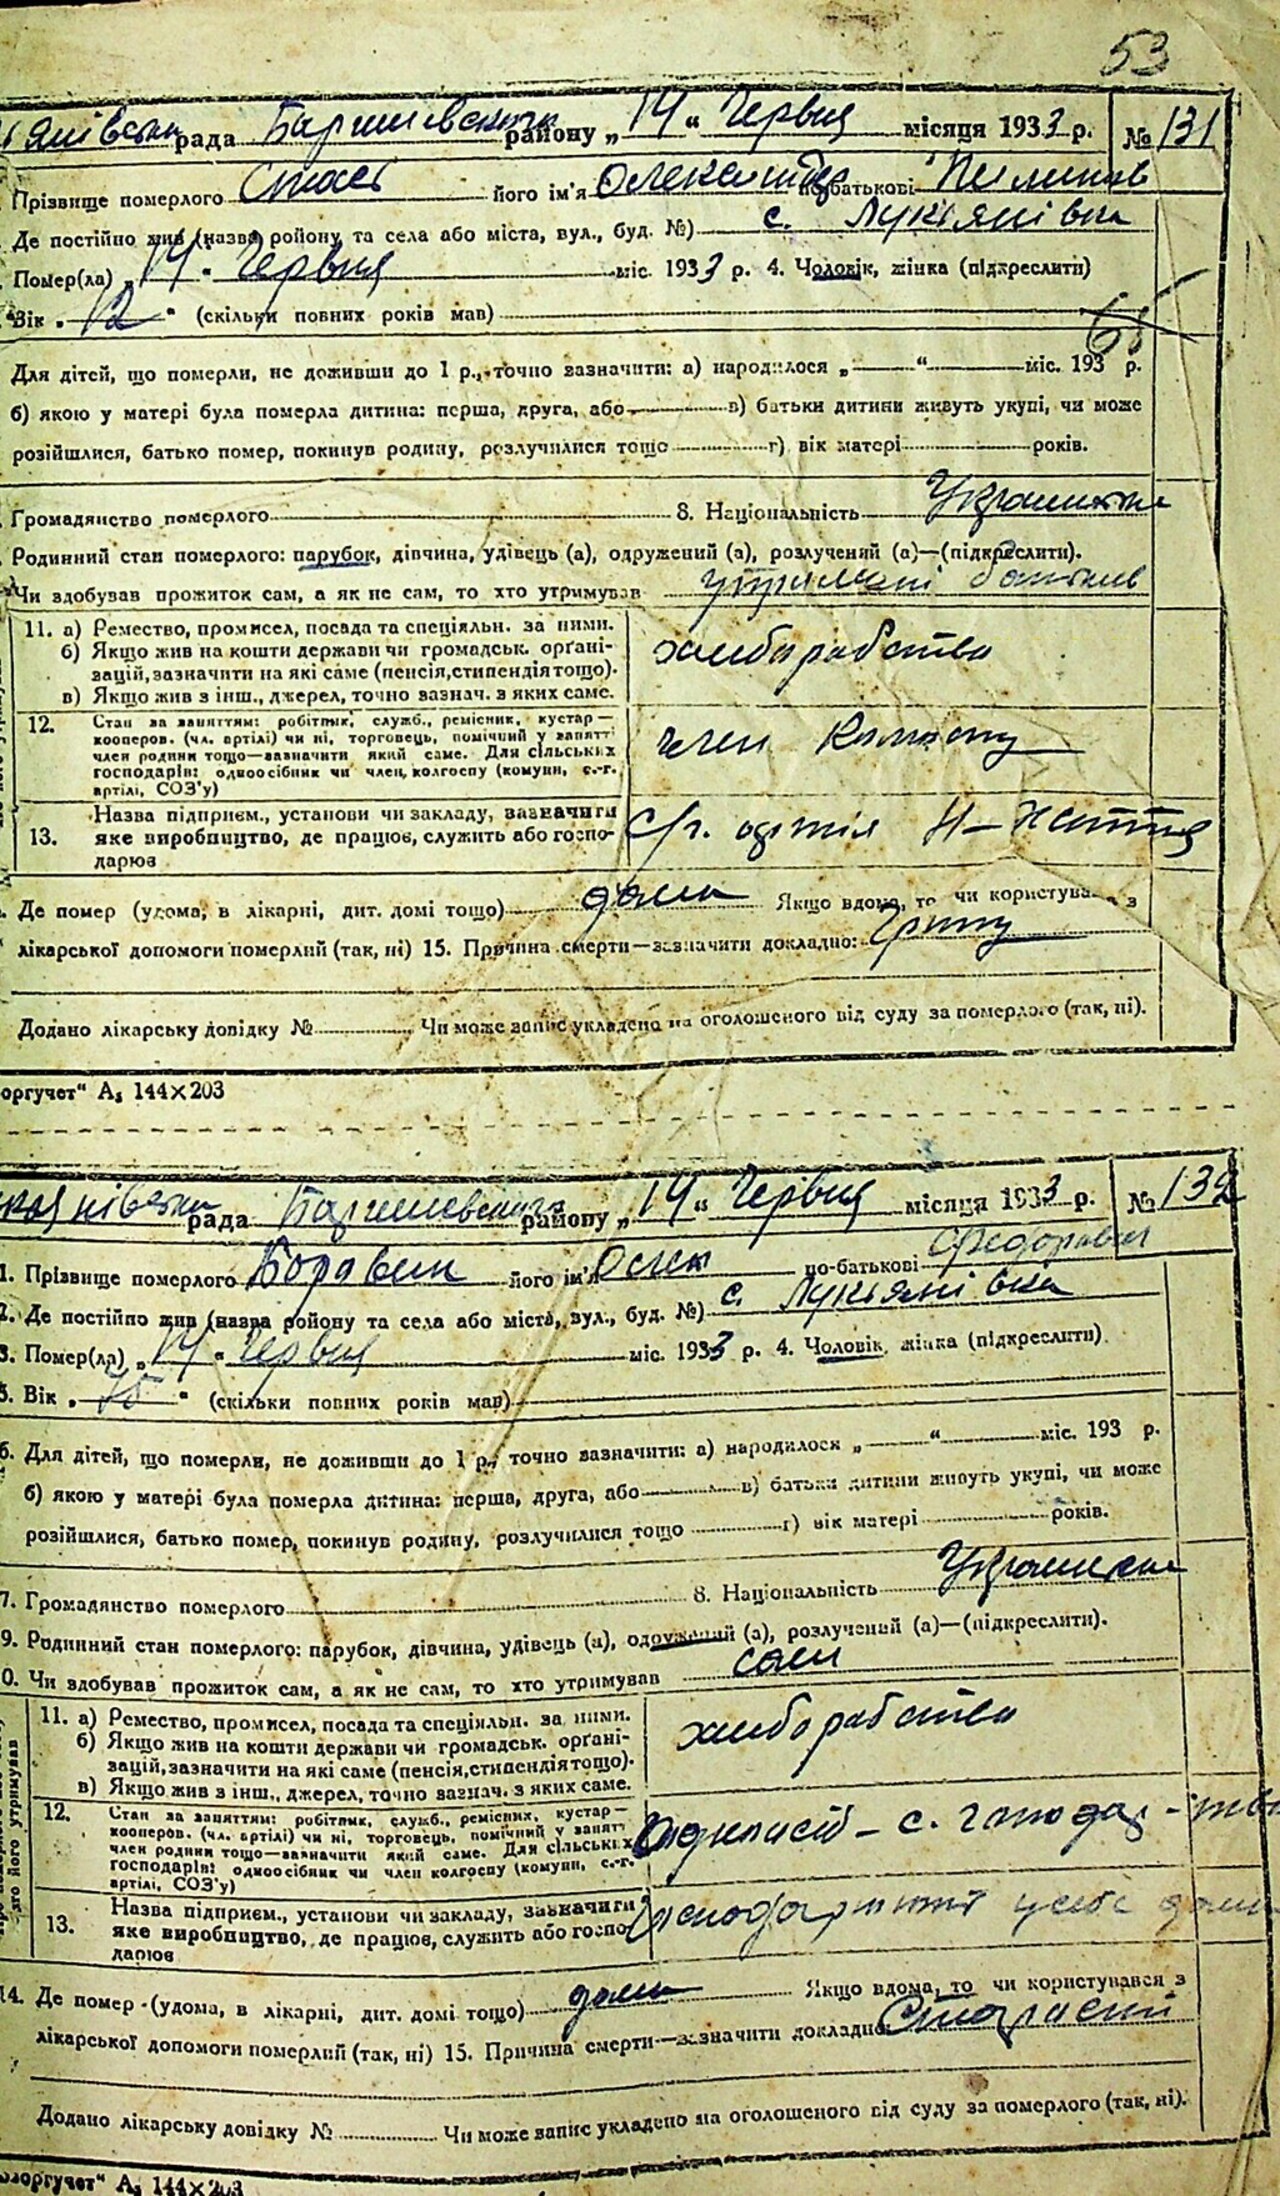 53
рада Баришевського району „14“ Червня місяця 1933 р. № 131
Прізвище померлого його ім'я Олександр по батькові Пилипов
Де постійно жив (назва району, та села або міста, вул., буд. №) с. Лукянівка
Помер(ла) „14“ Червня міс. 1933 р. 4. Чоловік, жінка (підкреслити)
Вік „12“ (скільки повних років мав)
Для дітей, що померли, не доживши до 1 р., точно зазначити: а) народилося „ “ міс. 193 р.
б) якою у матері була померла дитина: перша, друга, або в) батьки дитини живуть укупі, чи може
розійшлися, батько помер, покинув родину, розлучилися тощо г) вік матері років.
Громадянство померлого 8. Національність
Родинний стан померлого: парубок, дівчина, удівець (а), одружений (а), розлучений (а)—(підкреслити).
Чи здобував прожиток сам, а як не сам, то хто утримував утримані батьків
11. а) Ремество, промисел, посада та спеціяльн. за ними.
б) Якщо жив на кошти держави чи громадськ. орґані-
зацій, зазначити на які саме (пенсія, стипендія тощо).
в) Якщо жив з інш., джерел, точно вазнач. з яких саме.
хлиборабство
12. Стан за заняттям: робітник, служб., ремісник, кустар —
кооперов. (чл. артілі) чи ні, торговець, помічний у занятт.
член родини тощо—зазначити який саме. Для сільських
господарів: одноосібник чи член, колгоспу (комуни, с.-г.
артілі, СОЗ'у)
член Колгоспу
13. Назва підприєм., установи чи закладу, зазначити
яке виробництво, де працює, служить або госпо-
дарює
с/г. артіль
Де помер (удома, в лікарні, дит. домі тощо) дома Якщо вдома, то чи користува з
лікарської допомоги померлий (так, ні) 15. Причина смерти—зазначити докладно: Грипу
Додано лікарську довідку № Чи може запис укладено на оголошеного від суду за померлого (так, ні).
оргучет“ А₅ 144×203
рада Баришевського району „14“ Червня місяця 1933 р. № 132
1. Прізвище померлого Боровик його ім'я по-батькові Федорович
2. Де постійно жив (назва району та села або міста, вул., буд. №) с. Лукьянівка
3. Помер(ла) „14“ Червня міс. 1933 р. 4. Чоловік, жінка (підкреслити)
5. Вік „75“ (скільки повних років мав)
6. Для дітей, що померли, не доживши до 1 р., точно зазначити: а) народилося „ “ міс. 193 р.
б) якою у матері була померла дитина: перша, друга, або в) батьки дитини живуть укупі, чи може
розійшлися, батько помер, покинув родину, розлучилися тощо г) вік матері років.
7. Громадянство померлого 8. Національність
9. Родинний стан померлого: парубок, дівчина, удівець (а), одружений (а), розлучений (а)—(підкреслити).
0. Чи здобував прожиток сам, а як не сам, то хто утримував сам
11. а) Ремество, промисел, посада та спеціяльн. за ними.
б) Якщо жив на кошти держави чи громадськ. орґані-
зацій, зазначити на які саме (пенсія, стипендія тощо).
в) Якщо жив з інш., джерел, точно вазнач. з яких саме.
хлиборабство
12. Стан за заняттям: робітник, служб., ремісник, кустар —
кооперов. (чл. артілі) чи ні, торговець, помічний у занятт.
член родини тощо—зазначити який саме. Для сільських
господарів: одноосібник чи член колгоспу (комуни, с.-г.
артілі, СОЗ'у)
13. Назва підприєм., установи чи закладу, зазначити
яке виробництво, де працює, служить або госпо-
дарює
у себе дома
14. Де помер (удома, в лікарні, дит. домі тощо) дома Якщо вдома, то чи користувався з
лікарської допомоги померлий (так, ні) 15. Причина смерти—зазначити докладно Старасти
Додано лікарську довідку № Чи може запис укладено на оголошеного від суду за померлого (так, ні).
оргучет“ А₅ 144×203